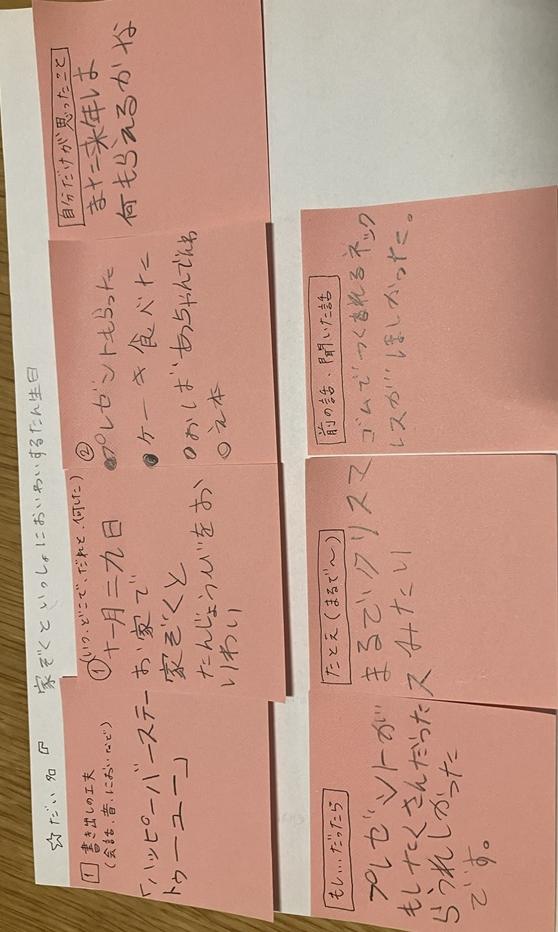 ☆だい名『
家ぞくといっしょにおいわいするたん生日
1 書き出しの工夫
(会話、音、においなど)
「ハッピーバースデー
トゥーユー」
① (いつ、どこで、だれと、何した)
十一月二九日
お家で
家ぞくと
たんじょうびをお
いわい
②
●プレゼントもらった
●ケーキ食べた
○おばあちゃんでんわ
◎え本
自分だけが思ったこと
また来年は
何もらえるかな
もし…だったら
プレゼントが
もしたくさんだった
らうれしかった
です。
たとえ(まるで〜)
まるでクリスマ
スみたい
前の話、聞いた話
ゴムでつくれるネック
レスがほしかった。